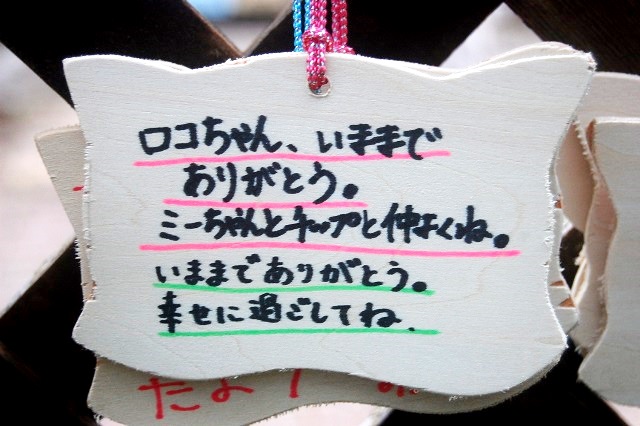 ロコちゃん、いままで
ありがとう。
ミーちゃんとチップと仲よくね。
いままでありがとう。
幸せに過ごしてね.